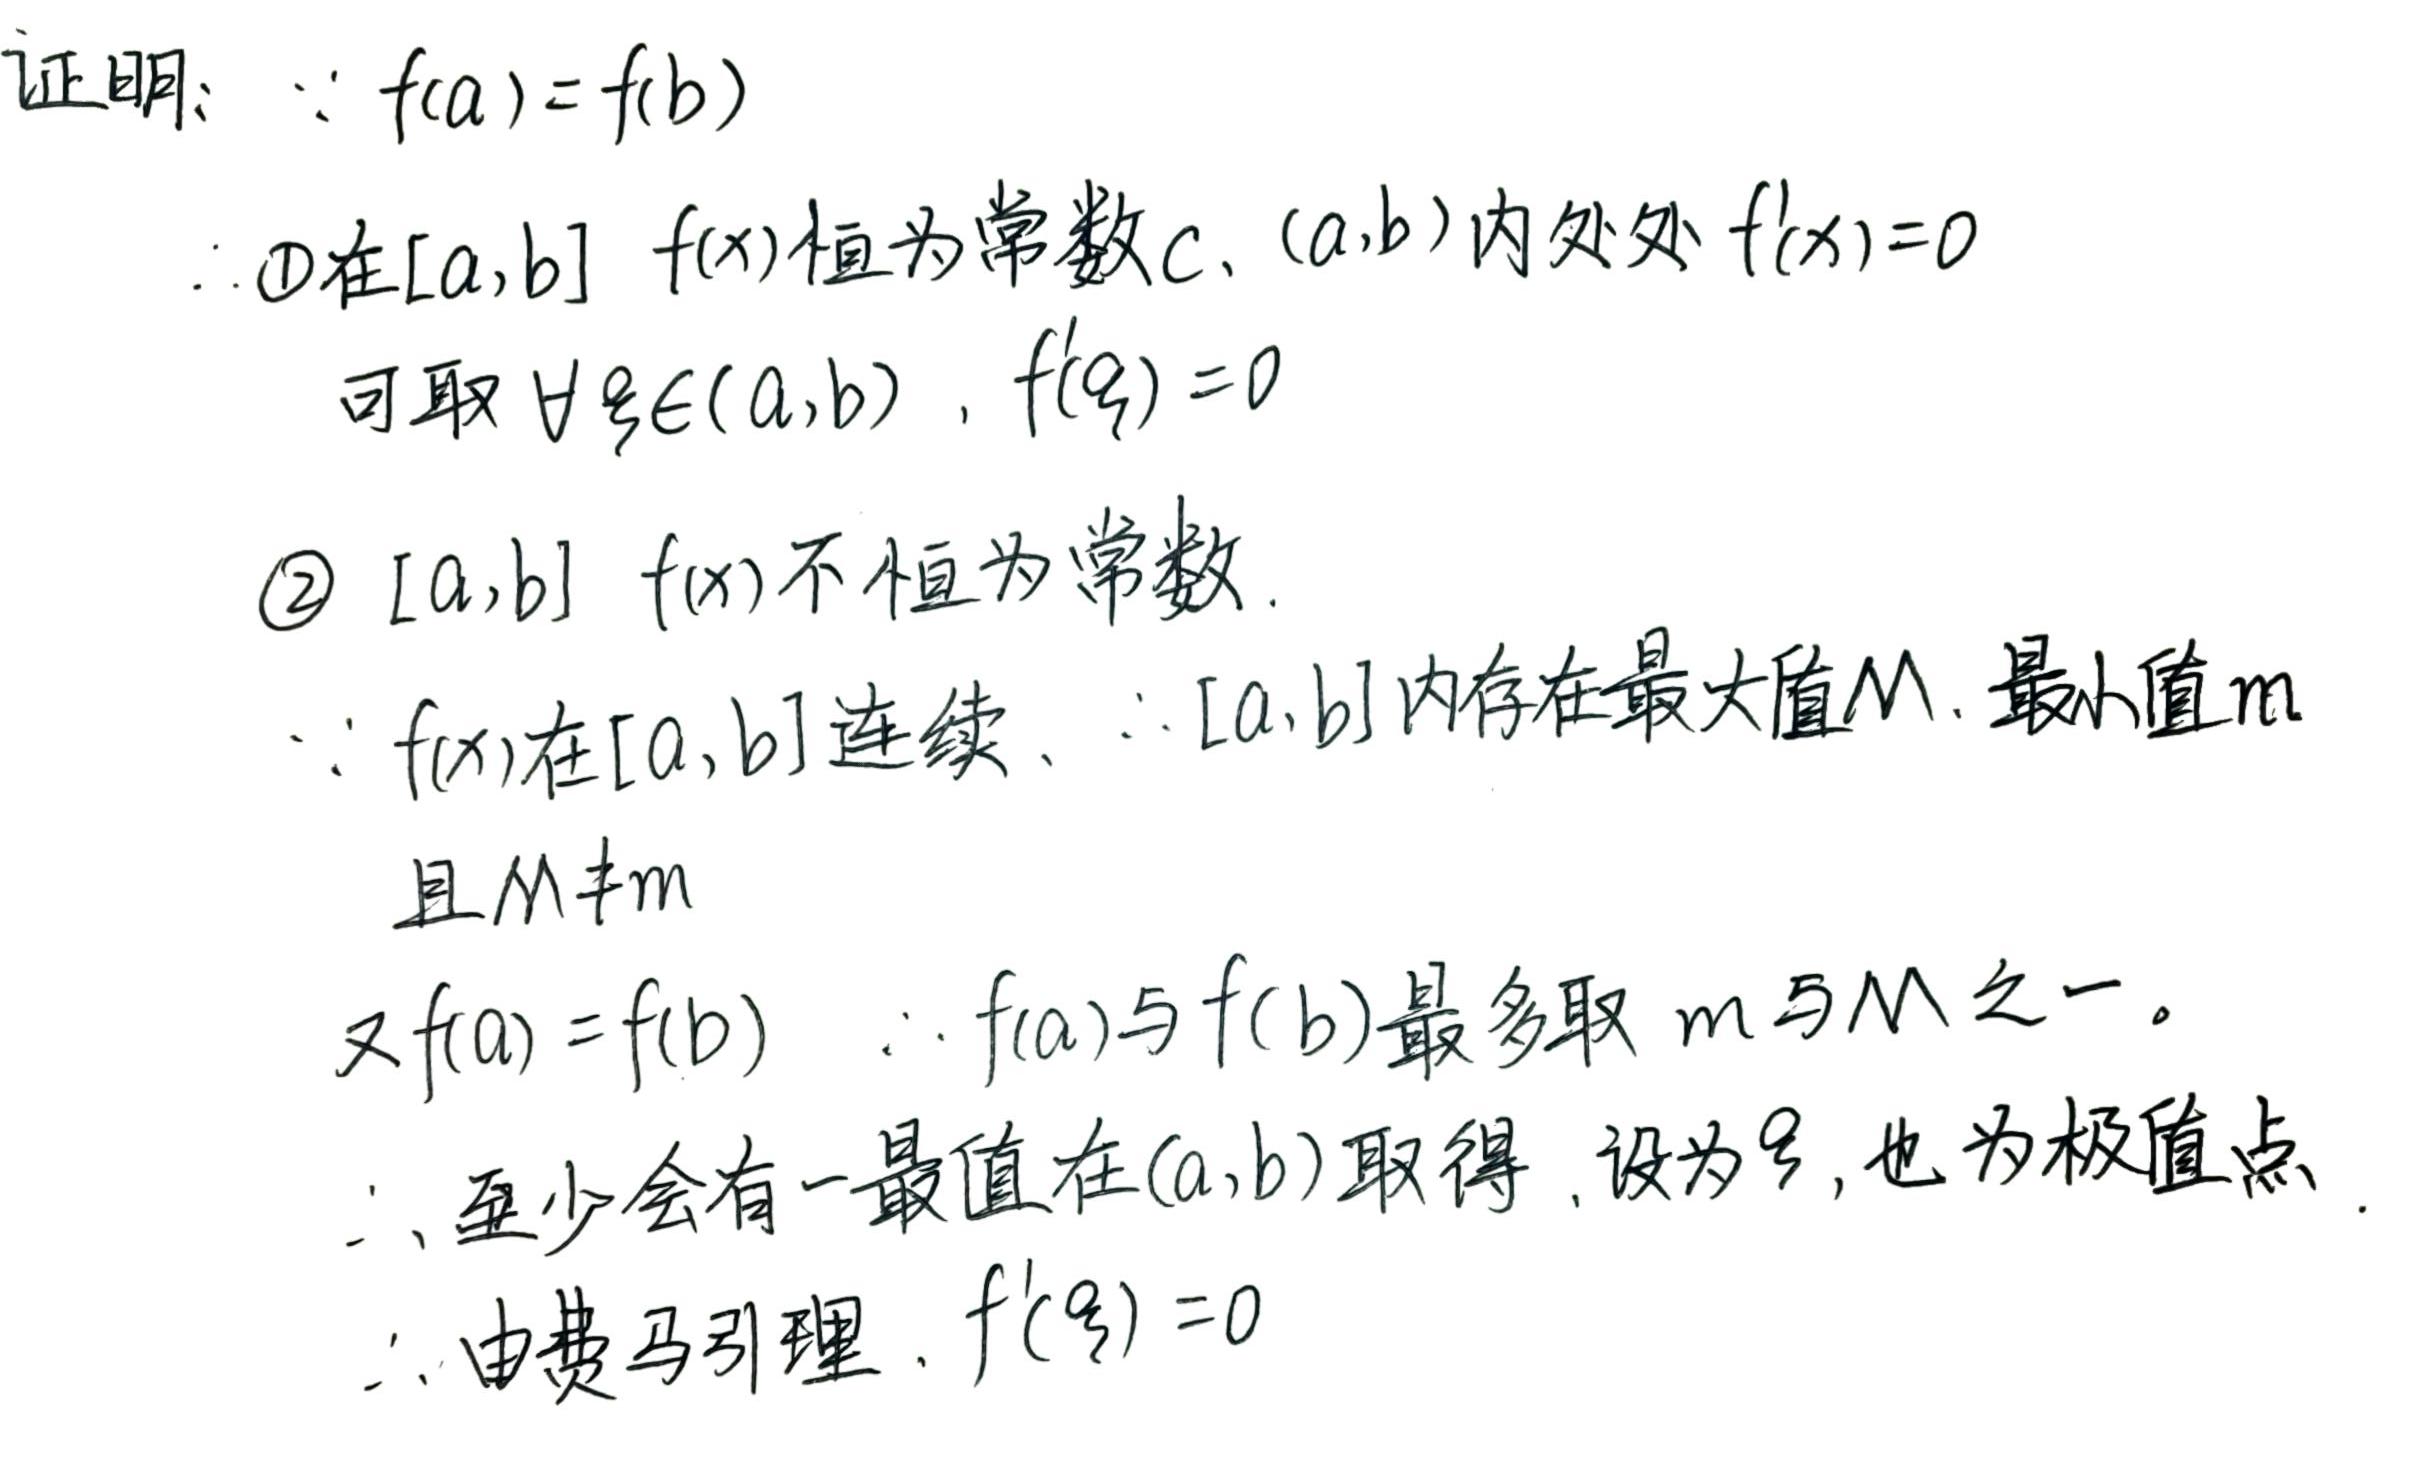 证明: ∵ f(a)=f(b)
∴①在[a,b] f(x)恒为常数c、(a,b)内处处f'(x)=0
可取∀ξ∈(a,b), f'(ξ)=0
② [a,b] f(x)不恒为常数.
∵ f(x)在[a,b]连续、∴[a,b]内存在最大值M、最小值m
且M≠m
又f(a)=f(b) ∴f(a)与f(b)最多取 m与M之一。
∴至少会有一最值在(a,b)取得,设为ξ,也为极值点.
∴由费马引理、f'(ξ)=0